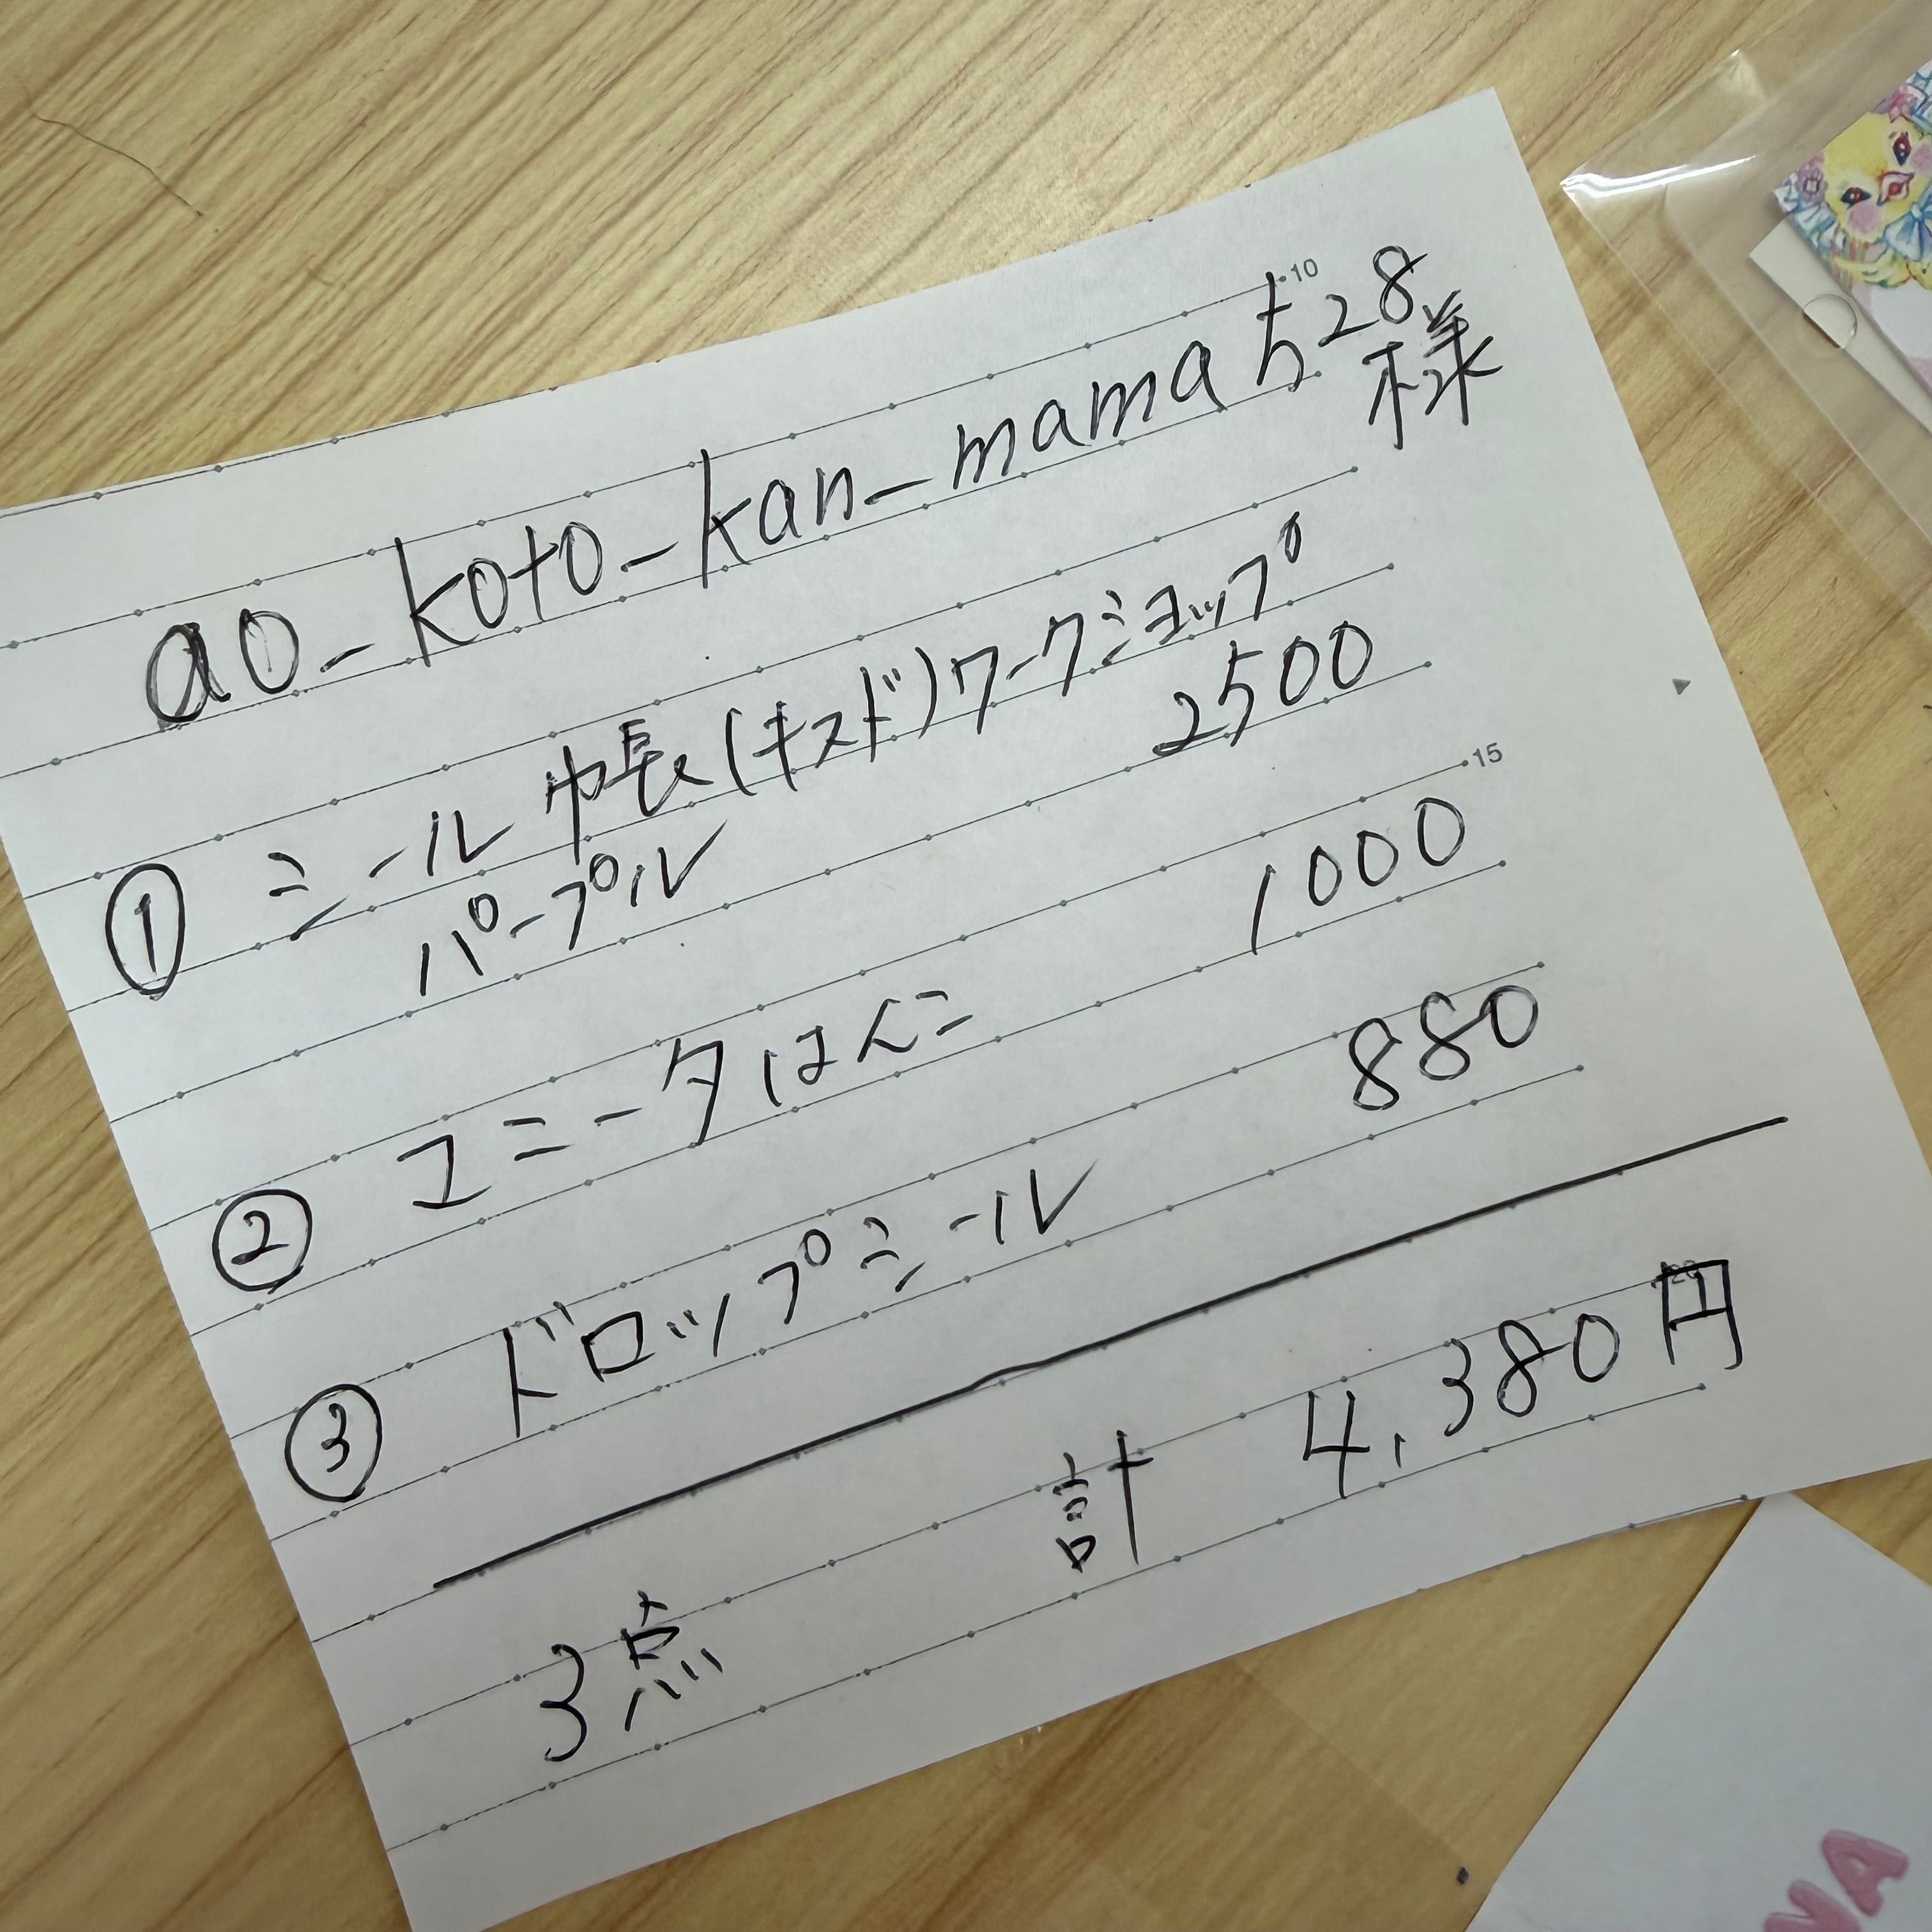 ao_koto_kan_mama ち28様
① シール帳(キッズ)ワークショップ
パープル 2500
② ユニータはんこ 1000
③ ドロップシール 880
3点 計 4,380円
10
15